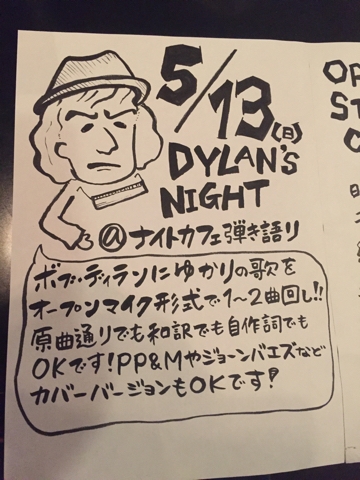 5/13(日)
DYLAN'S
NIGHT
@ナイトカフェ弾き語り
ボブ・ディランにゆかりの歌を
オープンマイク形式で1〜2曲回し!!
原曲通りでも和訳でも自作詞でも
OKです!PP&Mやジョーンバエズなど
カバーバージョンもOKです!
OP
ST